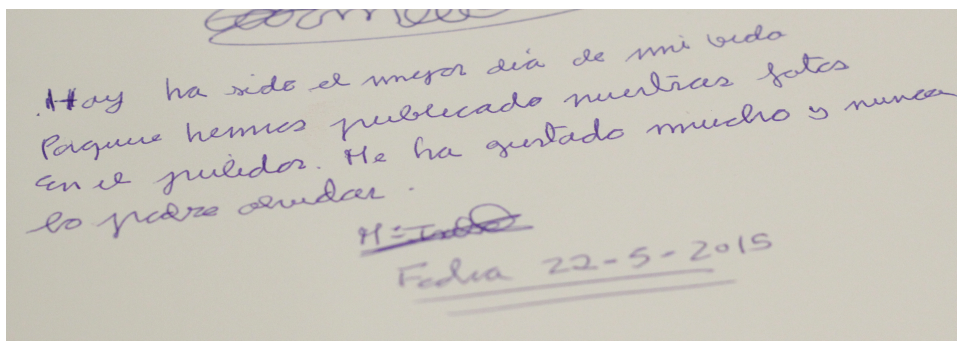 Hoy ha sido el mejor dia de mi vida
Porque hemos publicado nuestras fotos
en el Me ha gustado mucho y nunca
lo podre olvidar.
Fecha 22-5-2015